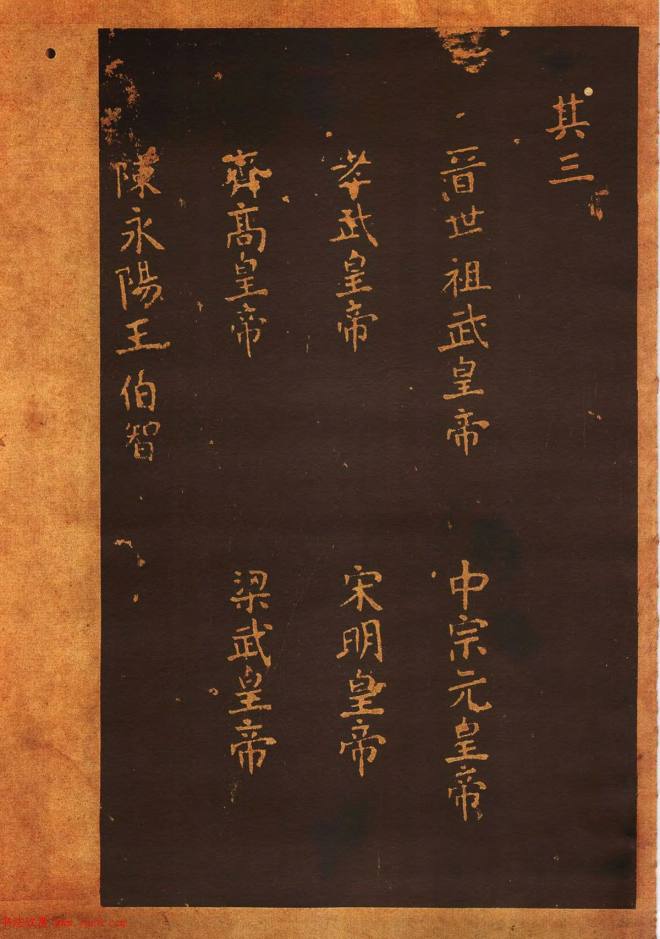 其三
晋世祖武皇帝
中宗元皇帝
孝武皇帝
宋明皇帝
齊高皇帝
梁武皇帝
陳永陽王伯智